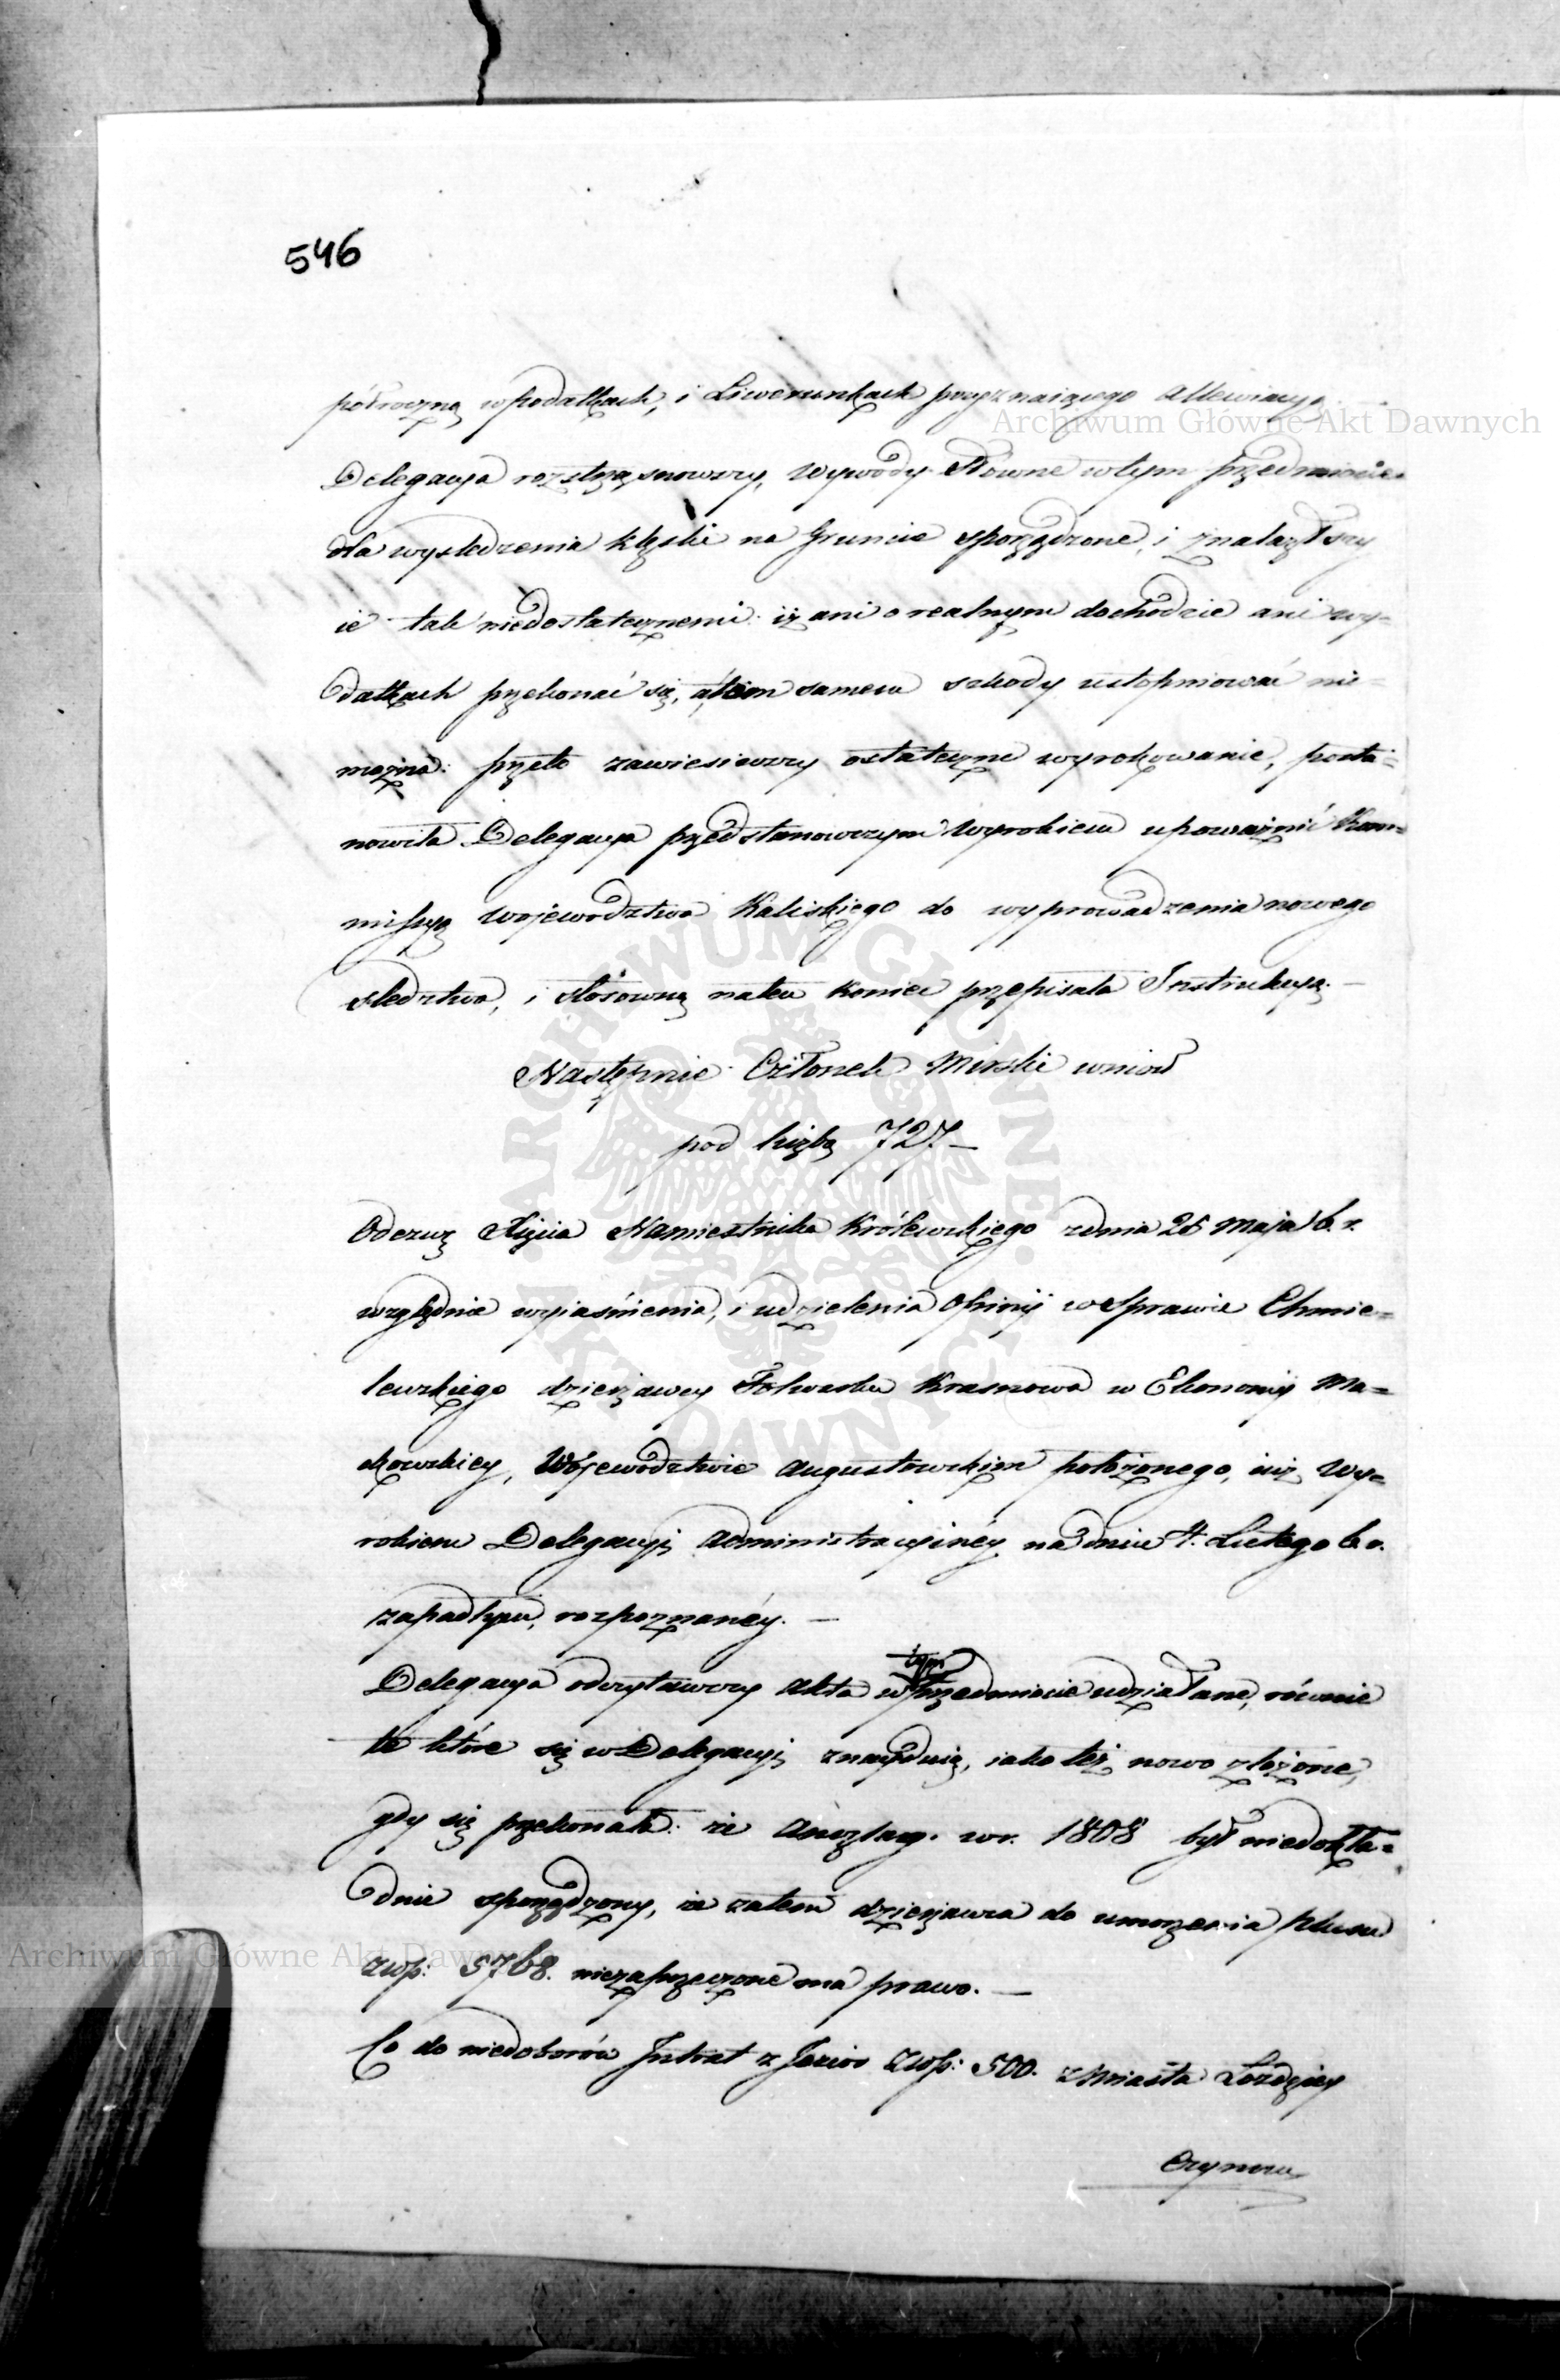 546
półroczną w podatkach, i Liwerunkach przyznaiącego allewiacyą.
Delegacya roztrząsnowszy, wywody Słowne w tym przedmiocie
dla wyśledzenia klęski na Gruncie sporządzone, i znalazłszy
ie tak niedostatecznemi: iż ani o realnym dochodzie ani wy=
datkach przekonać się, a tém samem szkody ustopniować nie=
można: przeto zawiesiwszy ostateczne wyrokowanie, posta=
nowiła Delegacya przedstanowczym Wyrokiem upoważnić Kom=
missyą Województwa Kaliskiego do wyprowadzenia nowego
śledztwa, i stosowną na ten koniec przepisała Instrukcyą. —
Następnie Członek Mirski wniosł
pod liczbą 727. —
Odezwę Xięcia Namiestnika Królewskiego z dnia 26 Maja b. r.
względnie wyiaśnienia, i udzielenia Opinij w Sprawie Chmie=
lewskiego dzierżawcy Folwarku Krasnowa w Ekonomij Ma=
ckowskiey, Województwie Augustowskiem położonego, iuż Wy=
rokiem Delegacyi Administracyinéy na dniu 4. Lutego b. r.
zapadłym, rozpoznanéy. —
Delegacya odczytawszy akta w tym przedmiocie udziałane, równie
te które się w Delegacyi znayduią, iako też nowo złożone,
gdy się przekonała: że Anszlag. w r. 1808 był niedokła=
dnie sporządzony, że zatem dzierżawca do umorzenia plusu
Złp: 5768. niezaprzeczone ma prawo. —
Co do niedoborów Intrat z Jezior Złp: 500. z Miasta Łoździey
Czynszu
Archiwum Główne Akt Dawnych
ARCHIWUM GŁÓWNE AKT DAWNYCH
Archiwum Główne Akt Dawnych